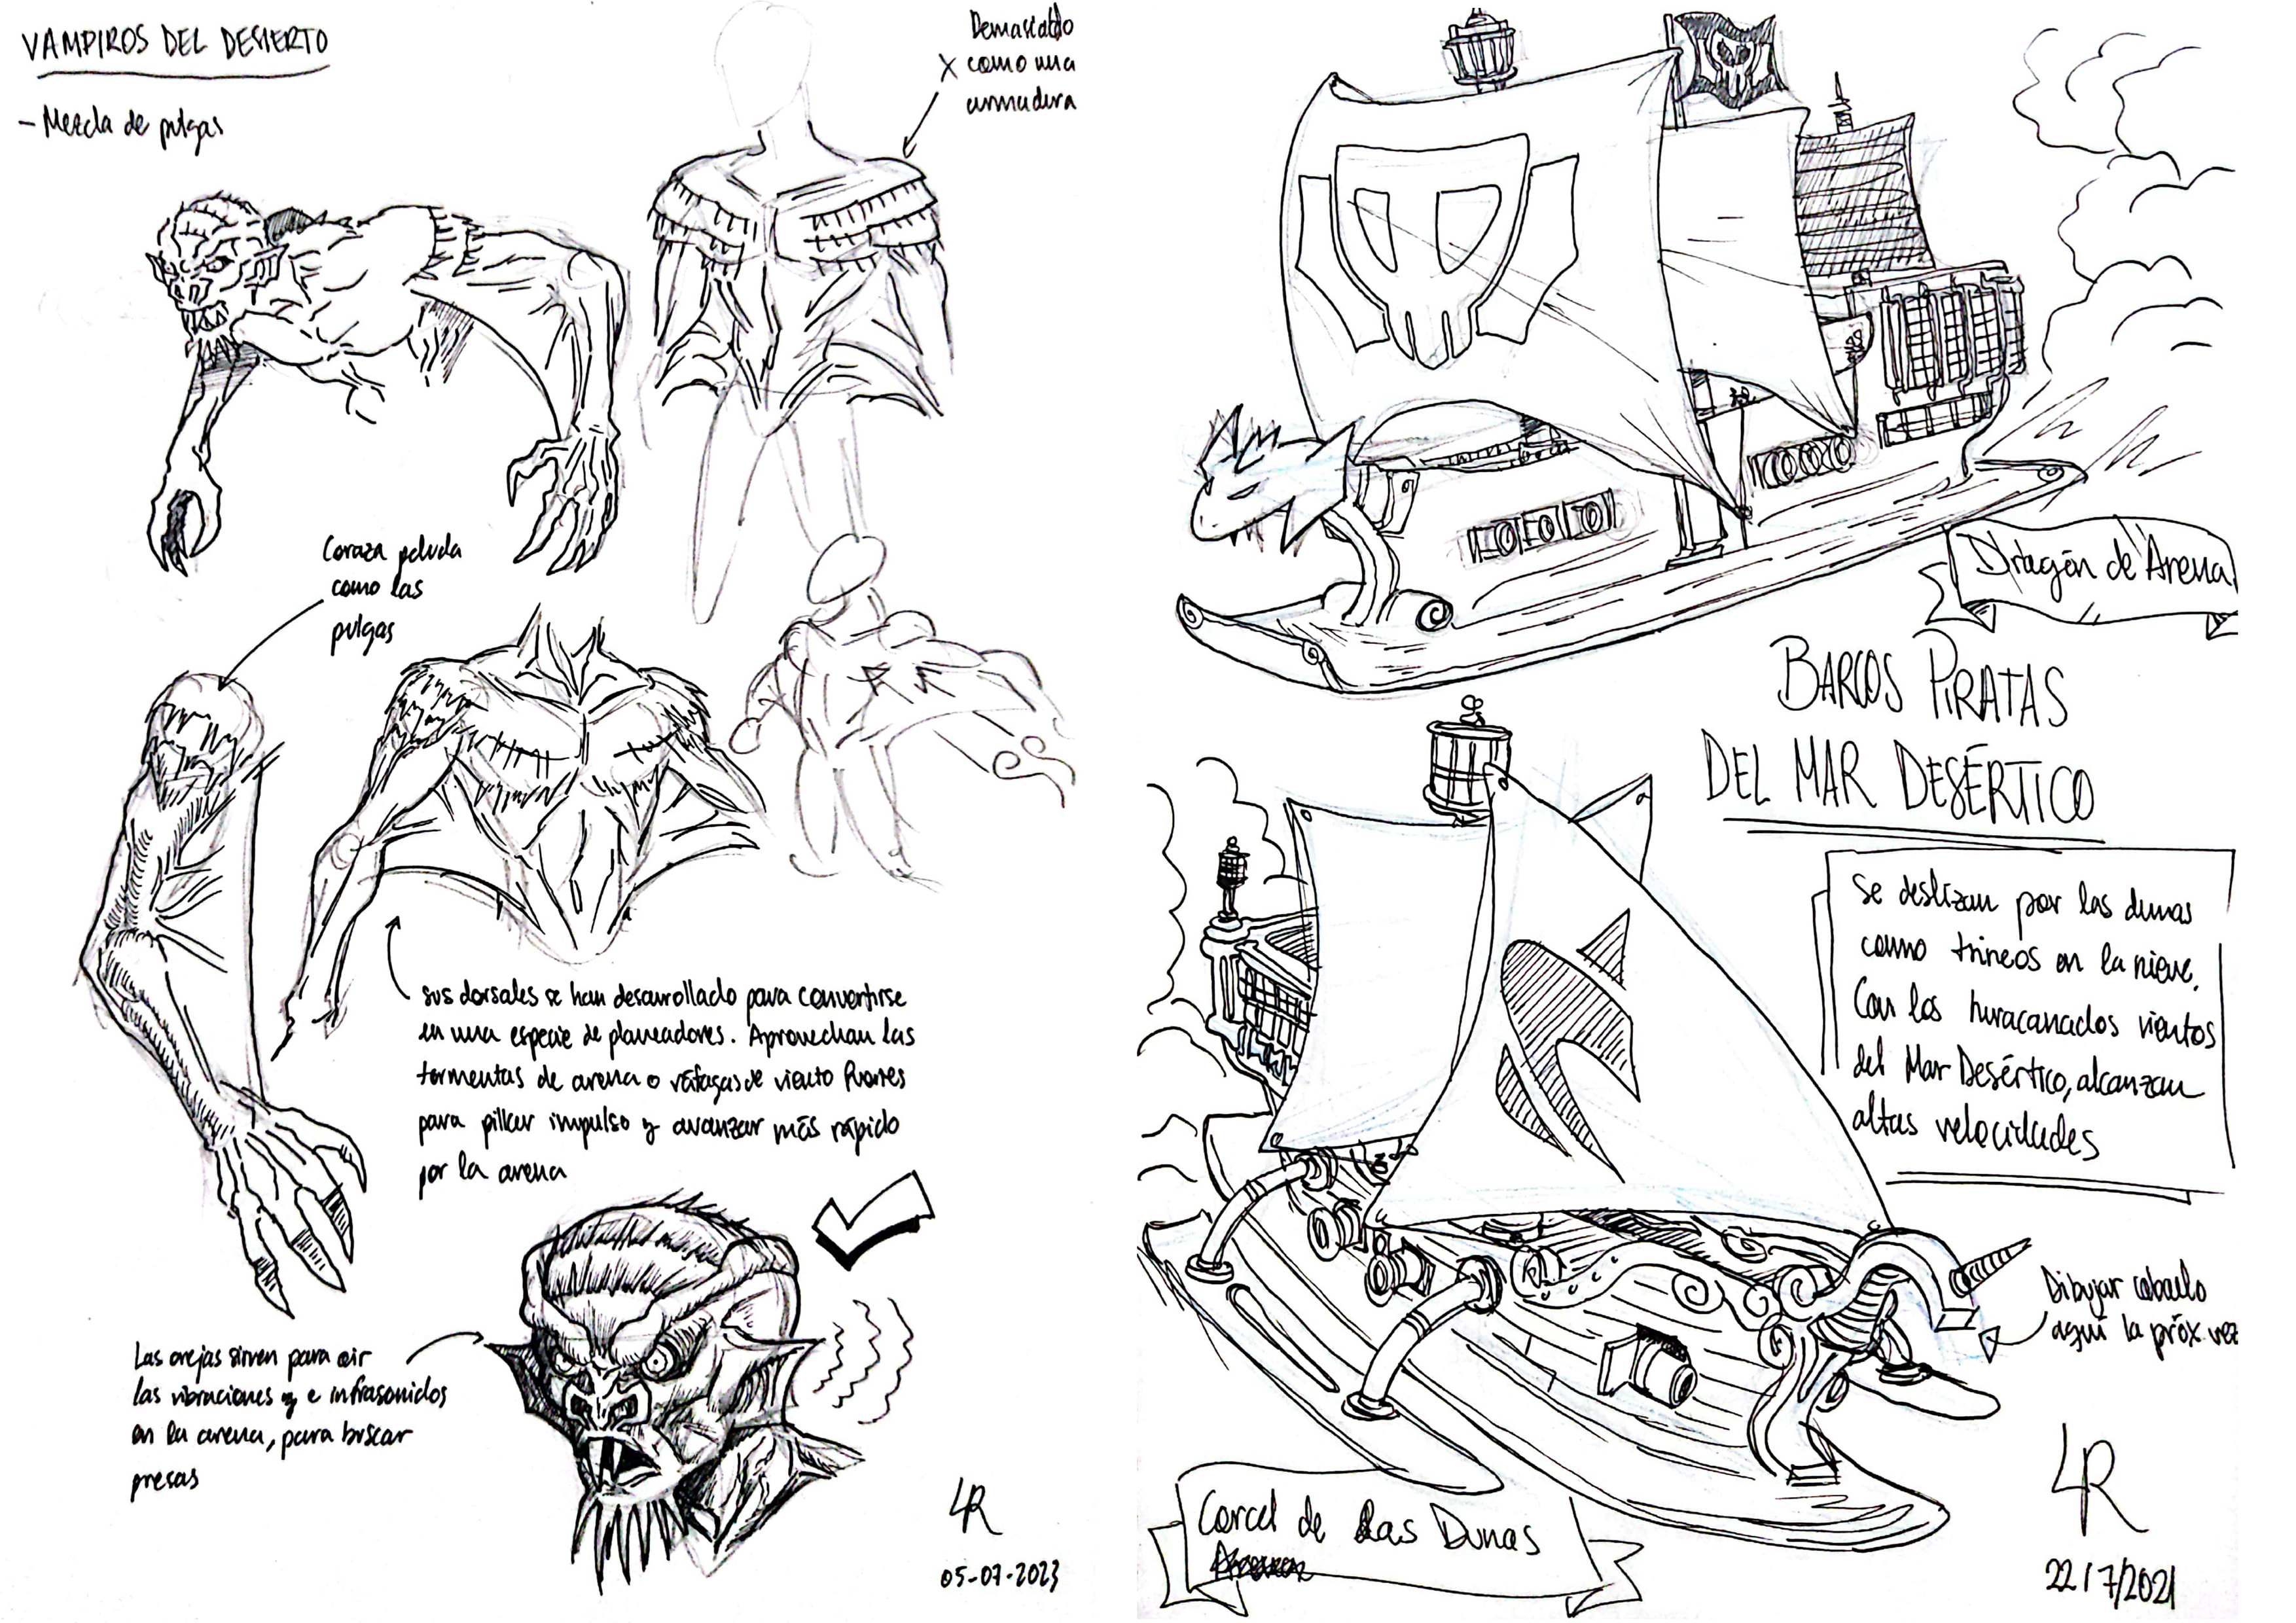 VAMPIROS DEL DESIERTO
- Mezcla de pulgas
Demasiado
X como una
armadura
Coraza peluda
como las
pulgas
sus dorsales se han desarrollado para convertirse
en una especie de planeadores. Aprovechan las
tormentas de arena o ráfagas de viento fuertes
para pillar impulso y avanzar más rápido
por la arena
Las orejas sirven para oir
las vibraciones y e infrasonidos
en la arena, para buscar
presas
LR
05-07-2023
Dragón de Arena
BARCOS PIRATAS
DEL MAR DESÉRTICO
Se deslizan por las dunas
como trineos en la nieve.
Con los huracanados vientos
del Mar Desértico, alcanzan
altas velocidades
Dibujar caballo
aquí la próx. vez
Corcel de Las Dunas
LR
22/7/2021